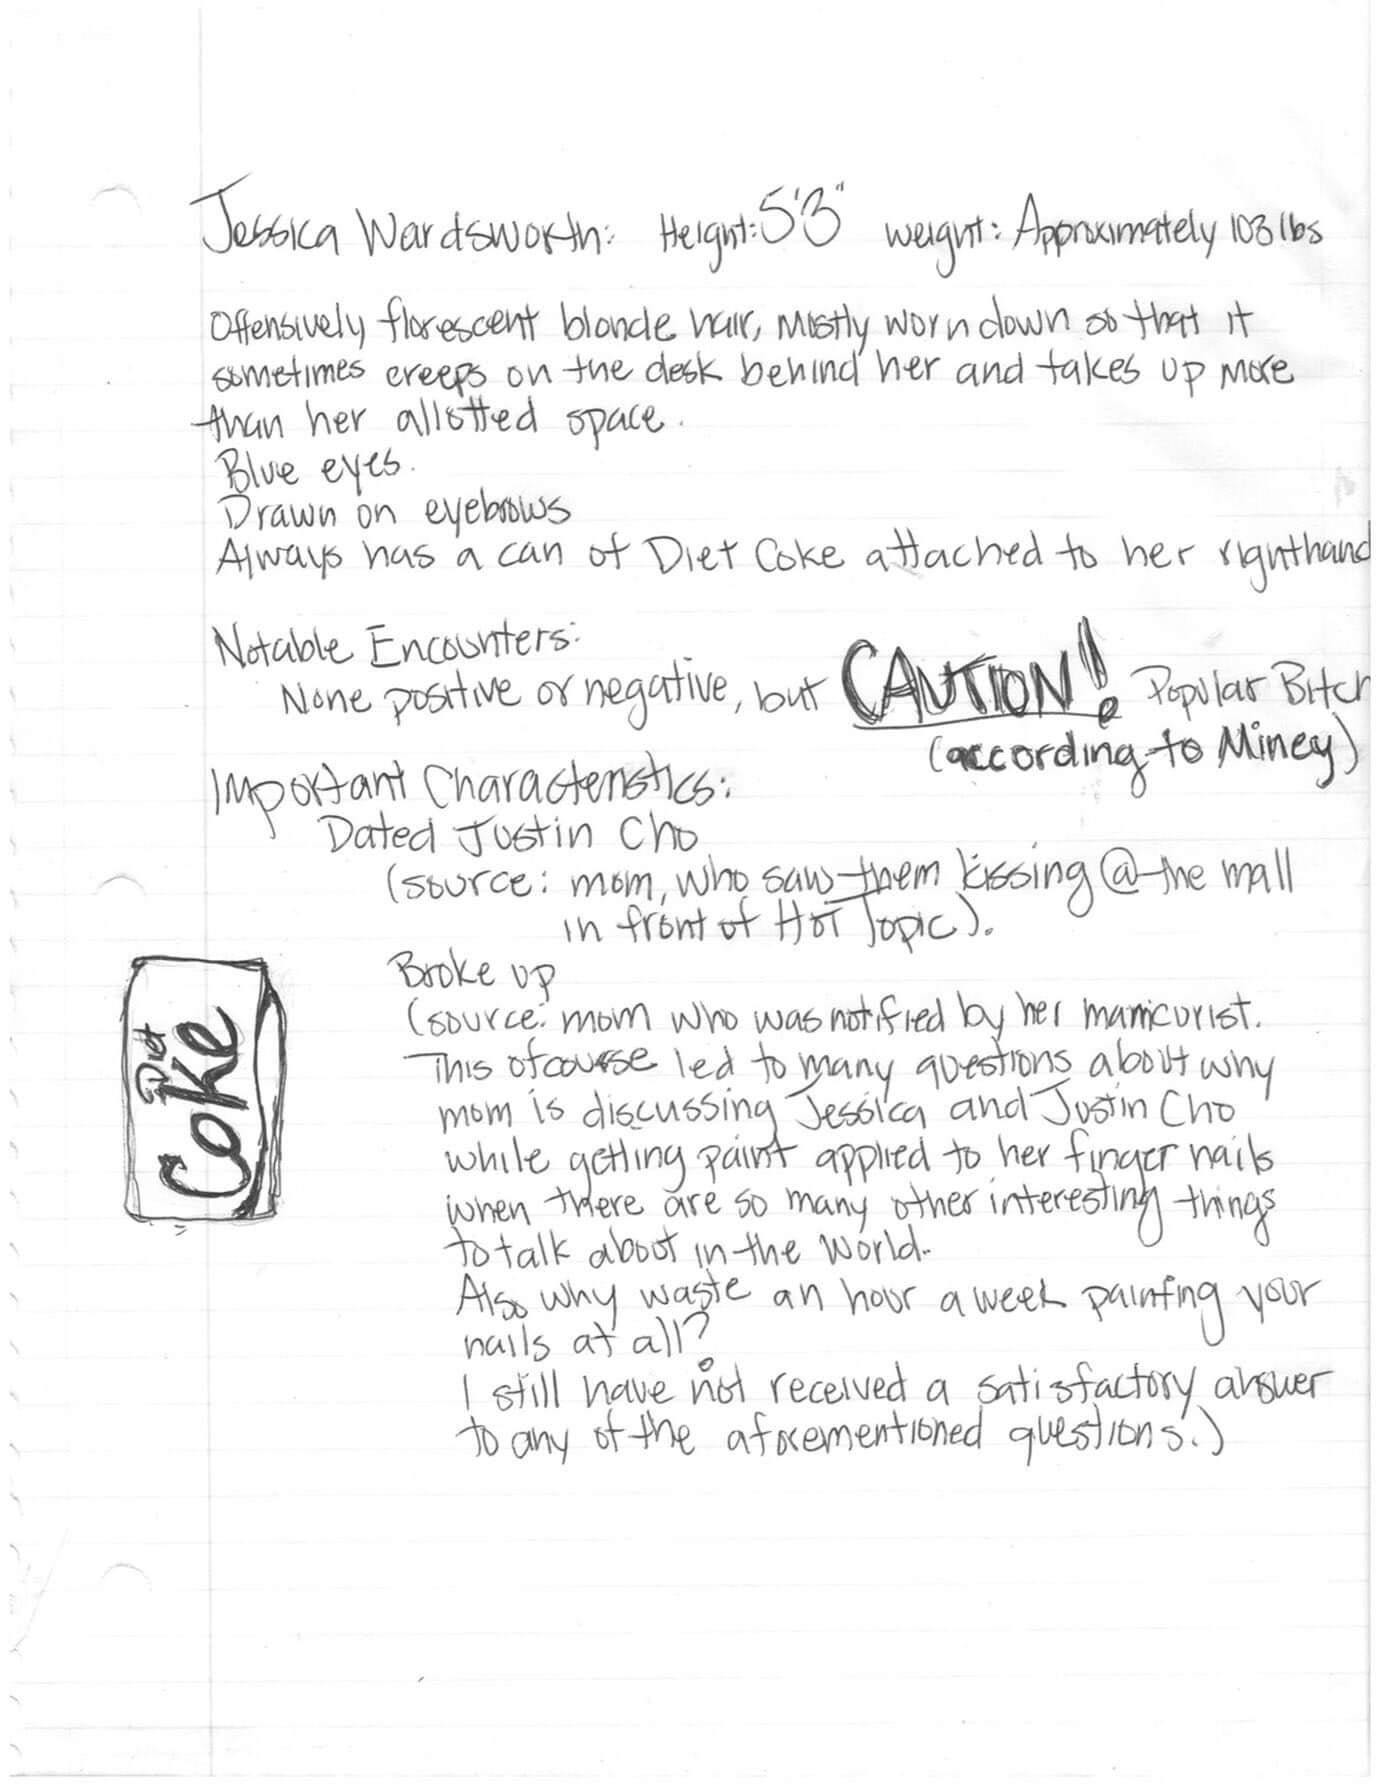 Jessica Wardsworth: Height: 5'3" weight: Approximately 103 lbs
Offensively florescent blonde hair, mostly worn down so that it
sometimes creeps on the desk behind her and takes up more
than her allotted space.
Blue eyes.
Drawn on eyebrows
Always has a can of Diet Coke attached to her righthand
Notable Encounters:
None positive or negative, but CAUTION! Popular Bitch
(according to Miney)
Important Characteristics:
Dated Justin Cho
(source: mom, who saw them kissing @ the mall
in front of Hot Topic).
Broke up
(source: mom who was notified by her manicurist.
This ofcourse led to many questions about why
mom is discussing Jessica and Justin Cho
while getting paint applied to her finger nails
when there are so many other interesting things
to talk about in the world.
Also why waste an hour a week painting your
nails at all?
I still have not received a satisfactory answer
to any of the aforementioned questions.)
Diet
Coke